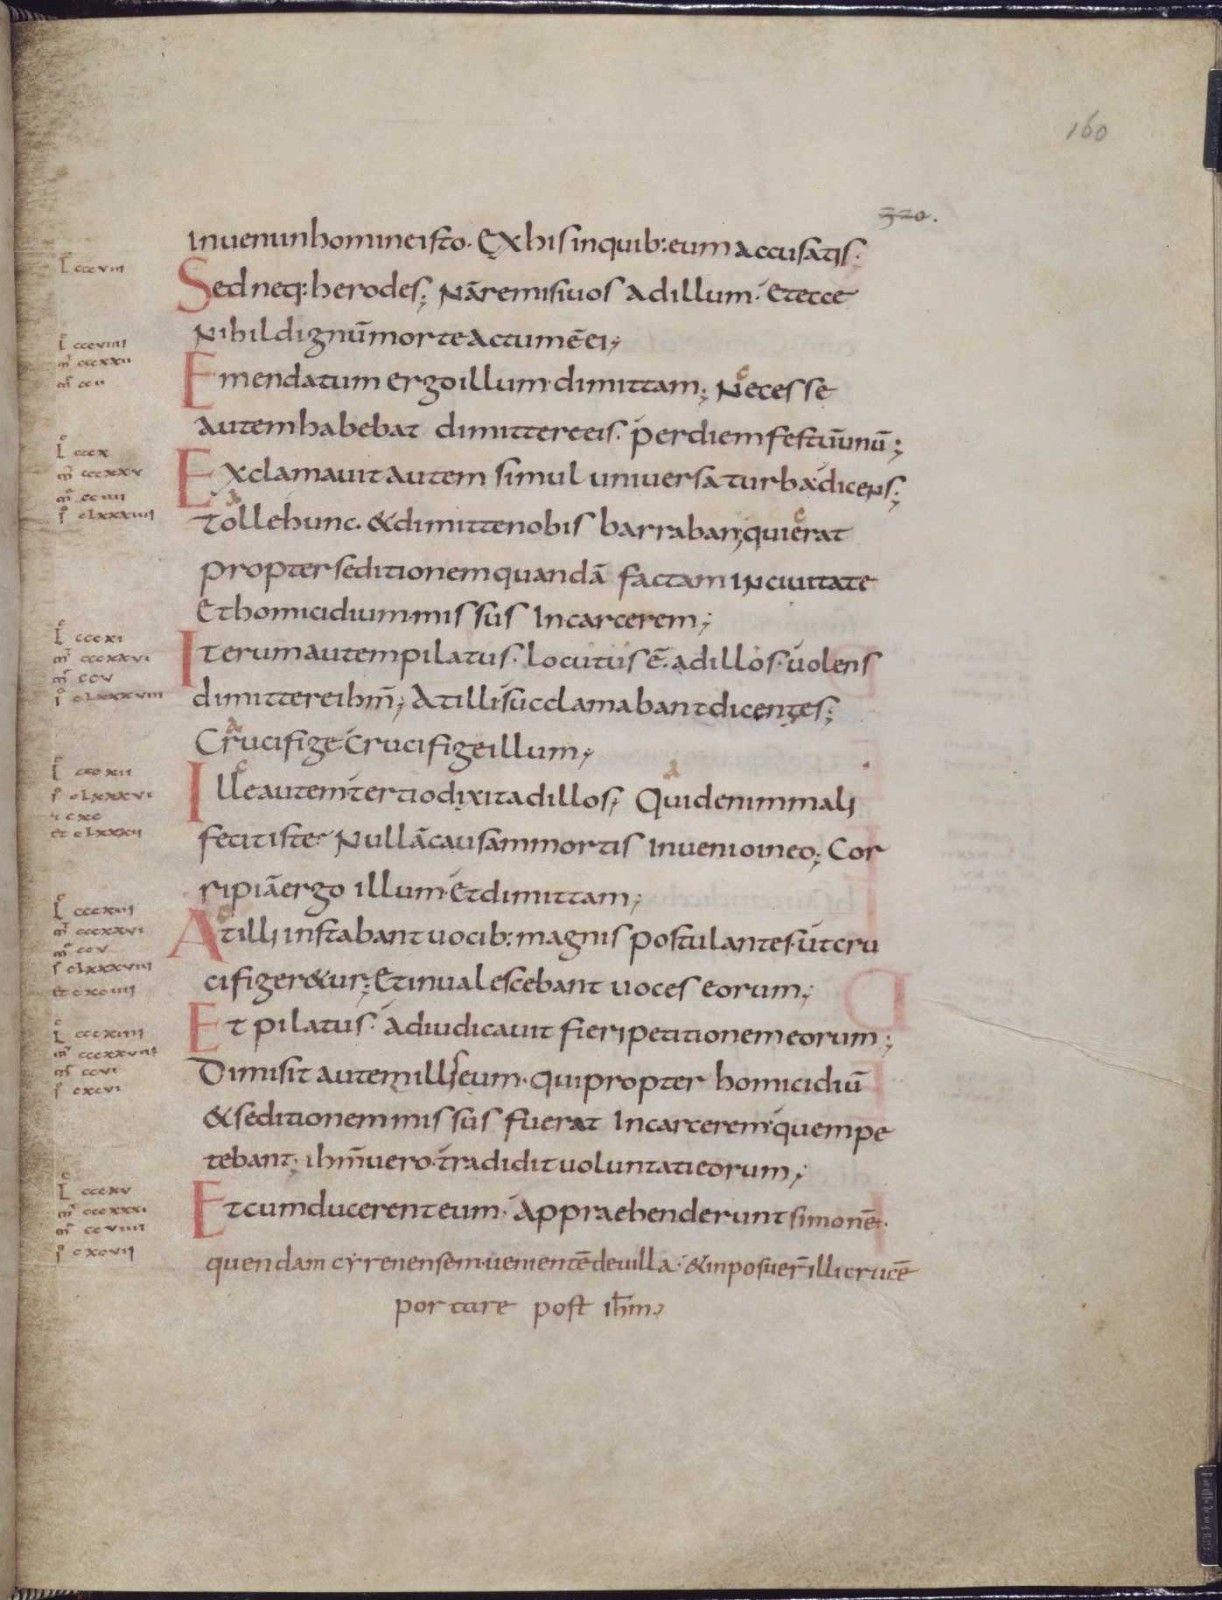 160
320.
inueni in homine isto. Ex his in quib: eum accusatis.
L cccviii
Sed neq: herodes; Nā remisi uos ad illum. Et ecce
Nihil dignū morte actum ē ei;
L cccviiii
m cccxxii
m ccii
Emendatum ergo illum dimittam; Necesse
autem habebat dimittere eis. per diem festū unū;
L cccx
m cccxxv
m cciiii
Exclamauit autem simul uniuersa turba dicens;
Tolle hunc. & dimitte nobis barraban; qui erat
propter seditionem quandā factam in ciuitate
Et homicidium missus In carcerem;
L cccxi
m cccxxvi
m ccv
Iterum autem pilatus. locutus ē. ad illos. uolens
dimittere ihm̄; At illi succlamabant dicentes;
Crucifige Crucifige illum;
L cccxii
Ille autem tertio dixit ad illos; Quid enim mali
fecit iste. Nullā causam mortis Inuenio in eo; Cor
ripiā ergo illum. Et dimittam;
L cccxiii
m cccxxvi
m ccv
At illi instabant uocib: magnis postulantes. ut cru
cifiger&ur; Et inualescebant uoces eorum;
L cccxiiii
m ccvi
Et pilatus. adiudicauit fieri petitionem eorum;
Dimisit autem illis eum. qui propter homicidiū
& seditionem missus fuerat In carcerem quem pe
tebant; ihm̄ uero tradidit uoluntati eorum;
L cccxv
m cccxxxi
m ccviiii
Et cum ducerent eum. Appraehenderunt simonē.
quendam cyrenensem. uenientē de uilla. & inposuer̄ illi crucē
portare post ihm̄;